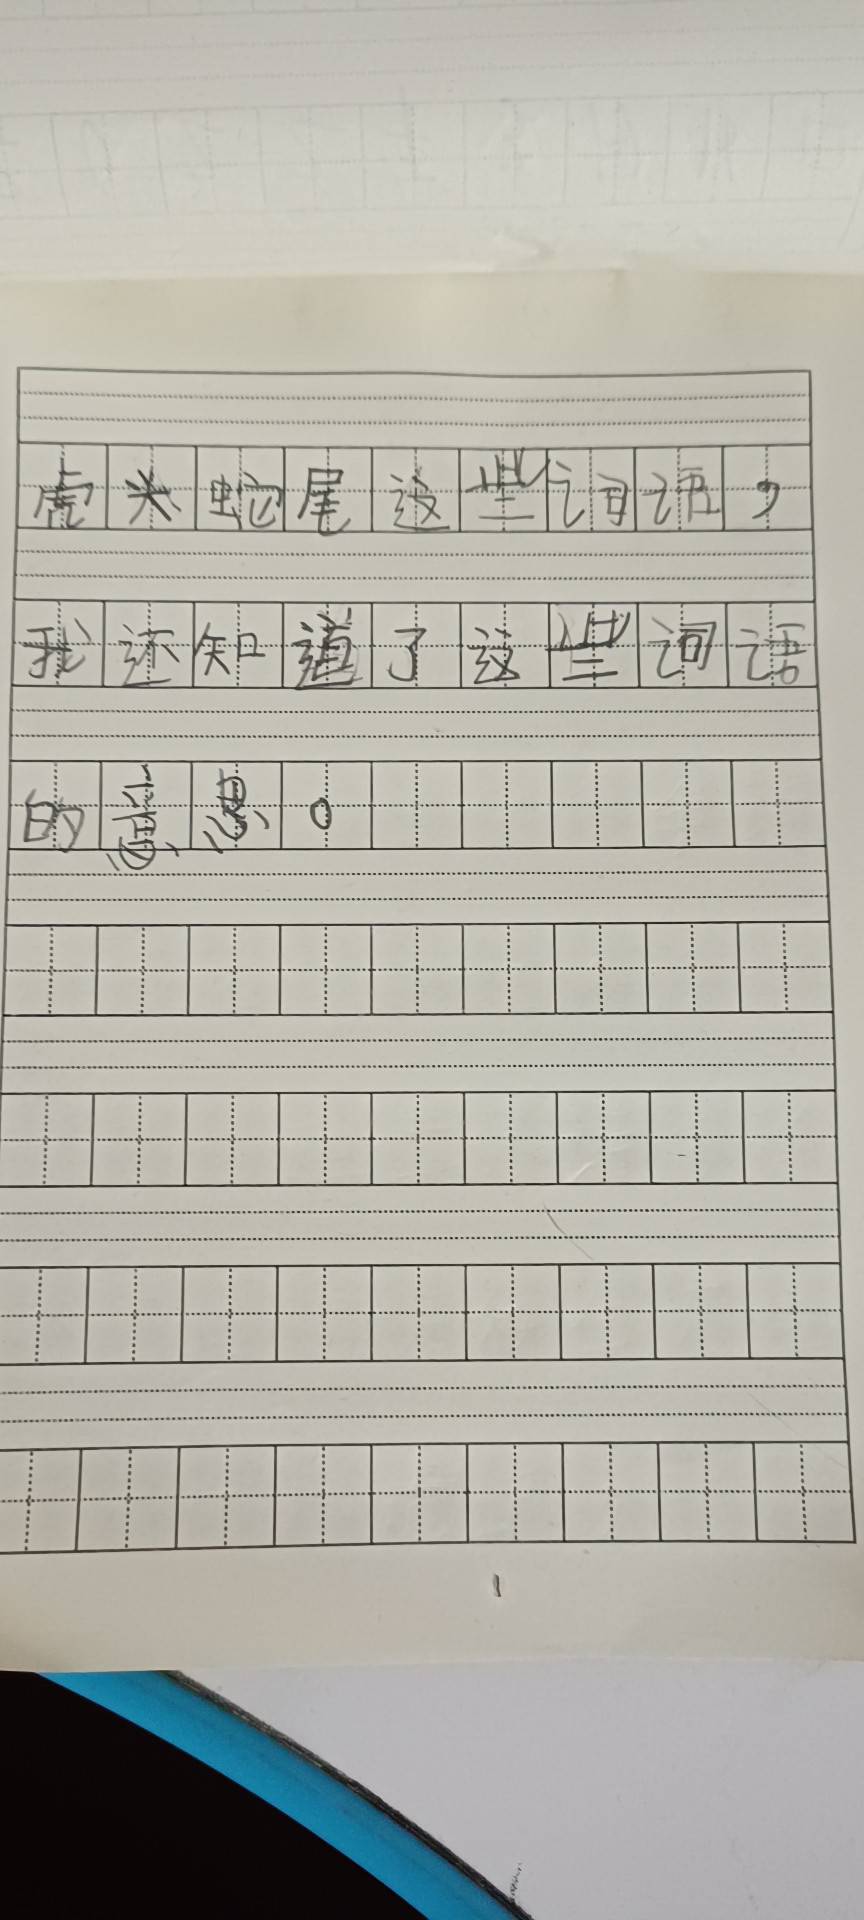 虎头蛇尾这些词语，
我还知道了这些词语
的意思。
1